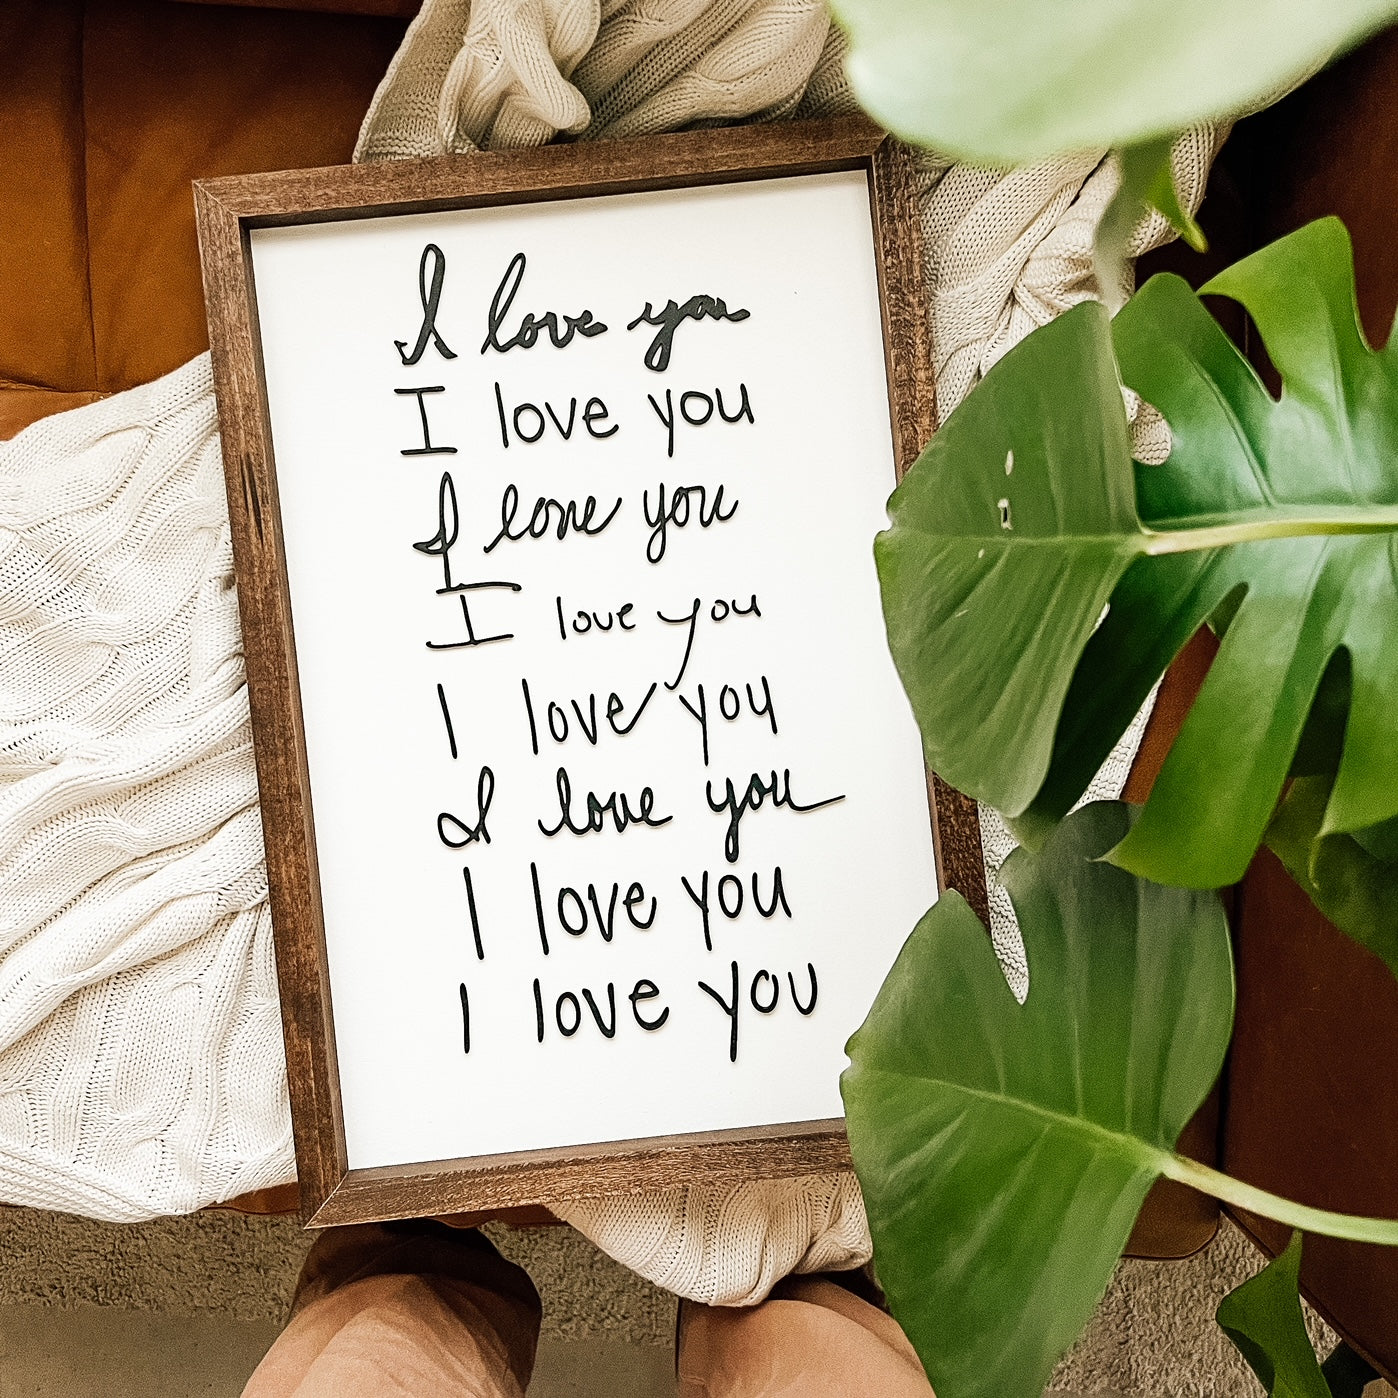 I love you
I love you
I love you
I love you
I love you
I love you
I love you
I love you